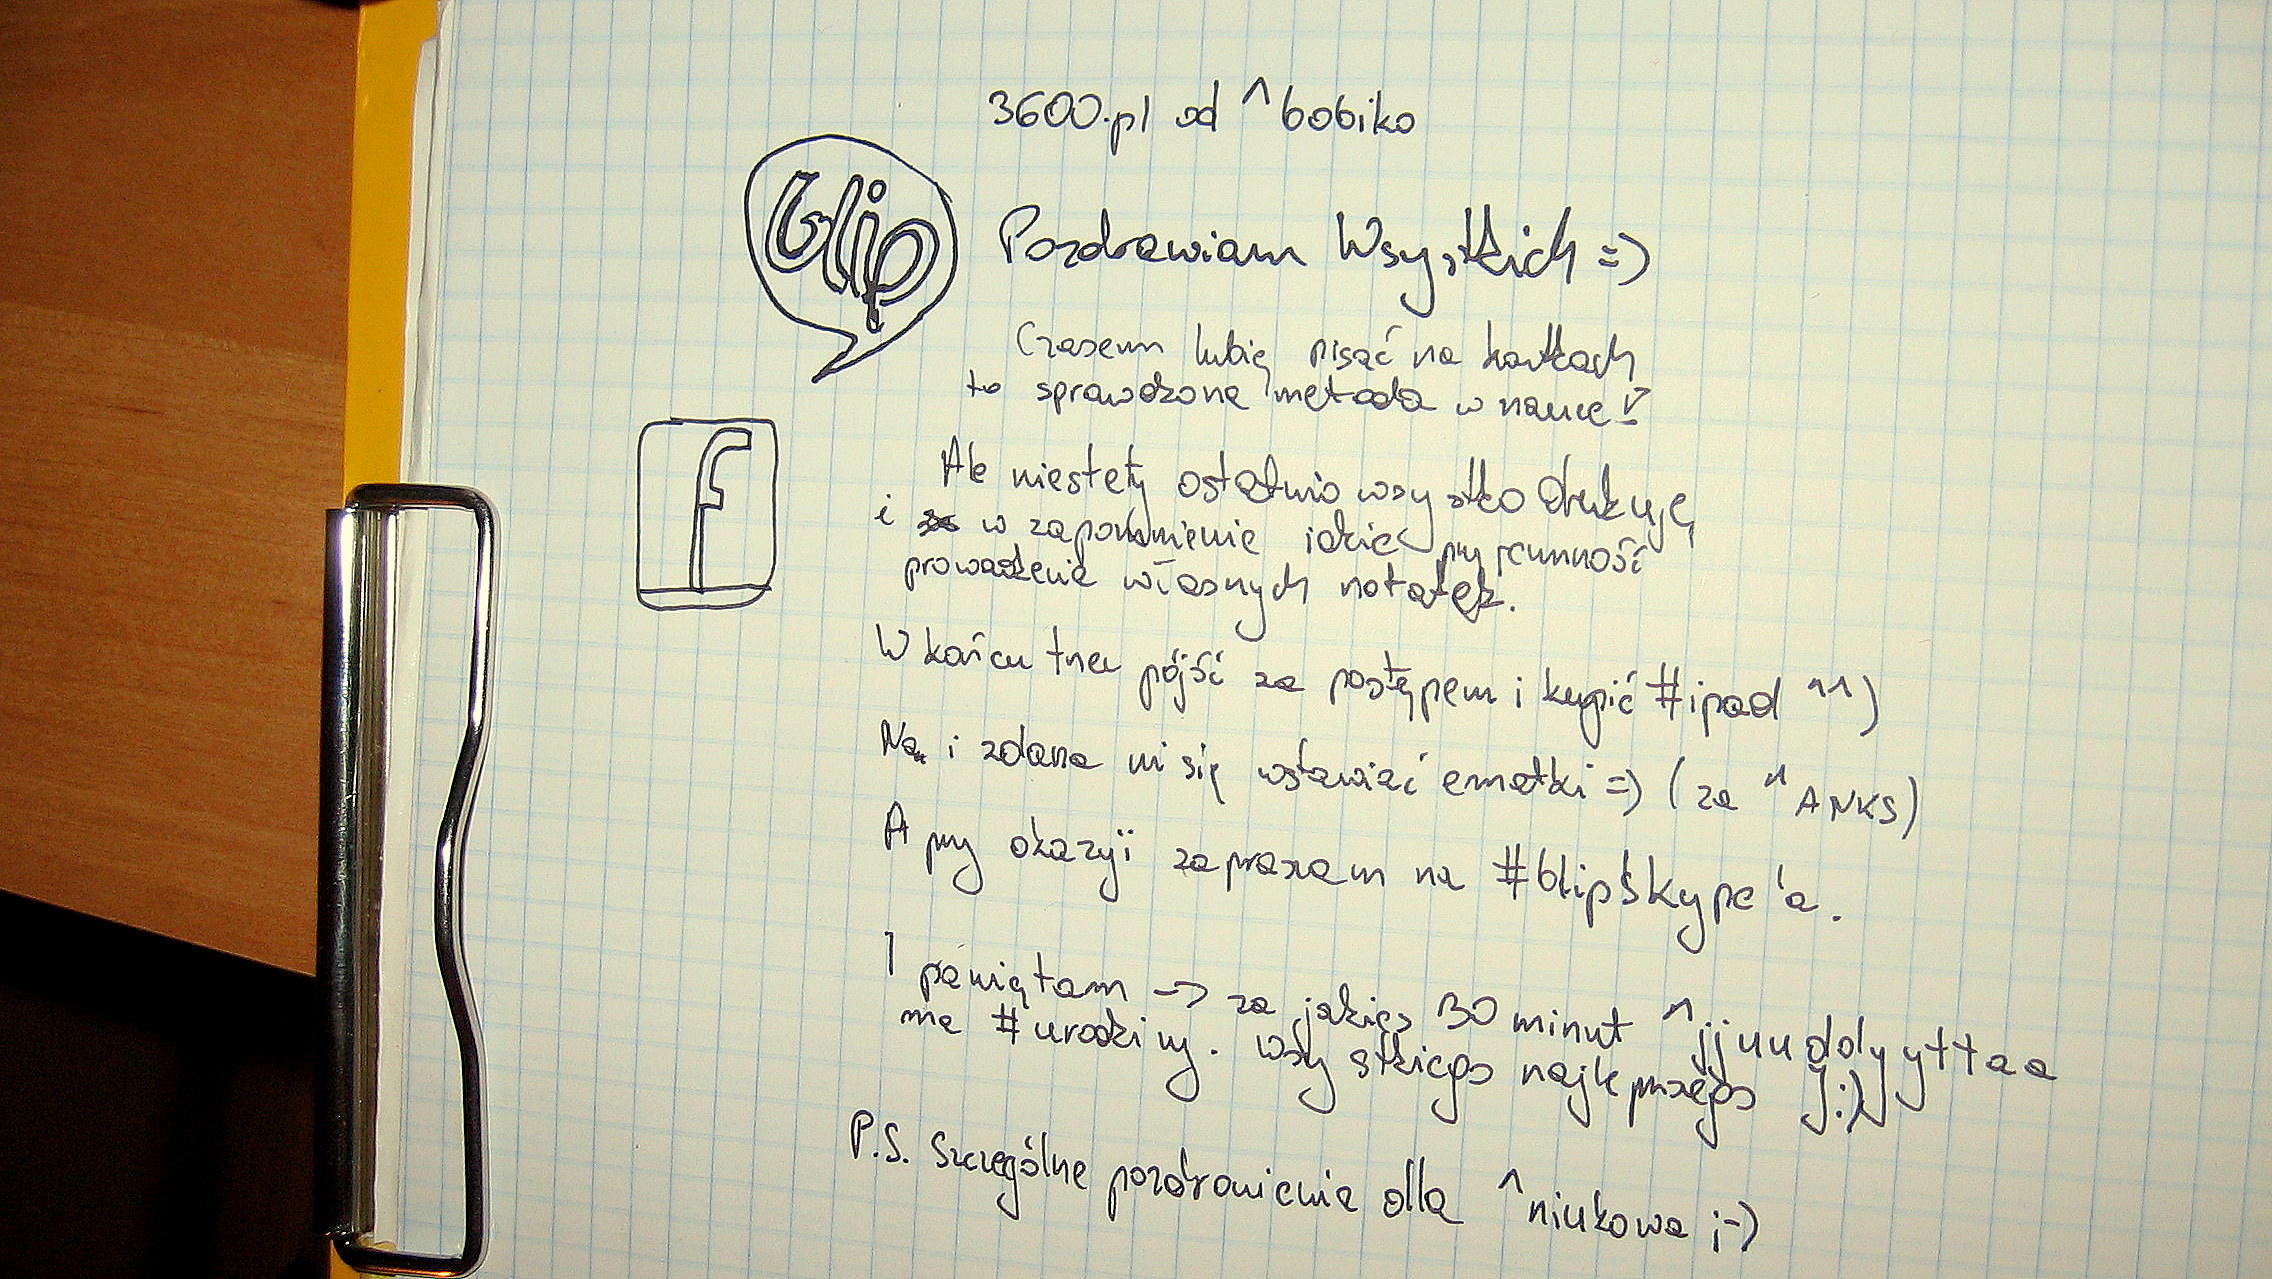 3600.pl od ^bobiko
blip
Pozdrawiam Wszystkich =)
Czasem lubię pisać na kartkach
to sprawdzona metoda w nauce!
f
Ale niestety ostatnio wszystko drukuję,
i w zapomnienie idzie przyjemność
prowadzenia własnych notatek.
W końcu trza pójść za postępem i kupić #ipad ^^)
No i zdarza mi się wstawiać emotki =) (za ^ANKS)
A przy okazyji zapraszam na #blipskype'a.
I pamiętam -> za jakieś 30 minut ^jjuuddyyttaa
ma #urodziny. Wszystkiego najlepszego J:)
P.S. Szczególne pozdrowienia dla ^niukowa ;-)